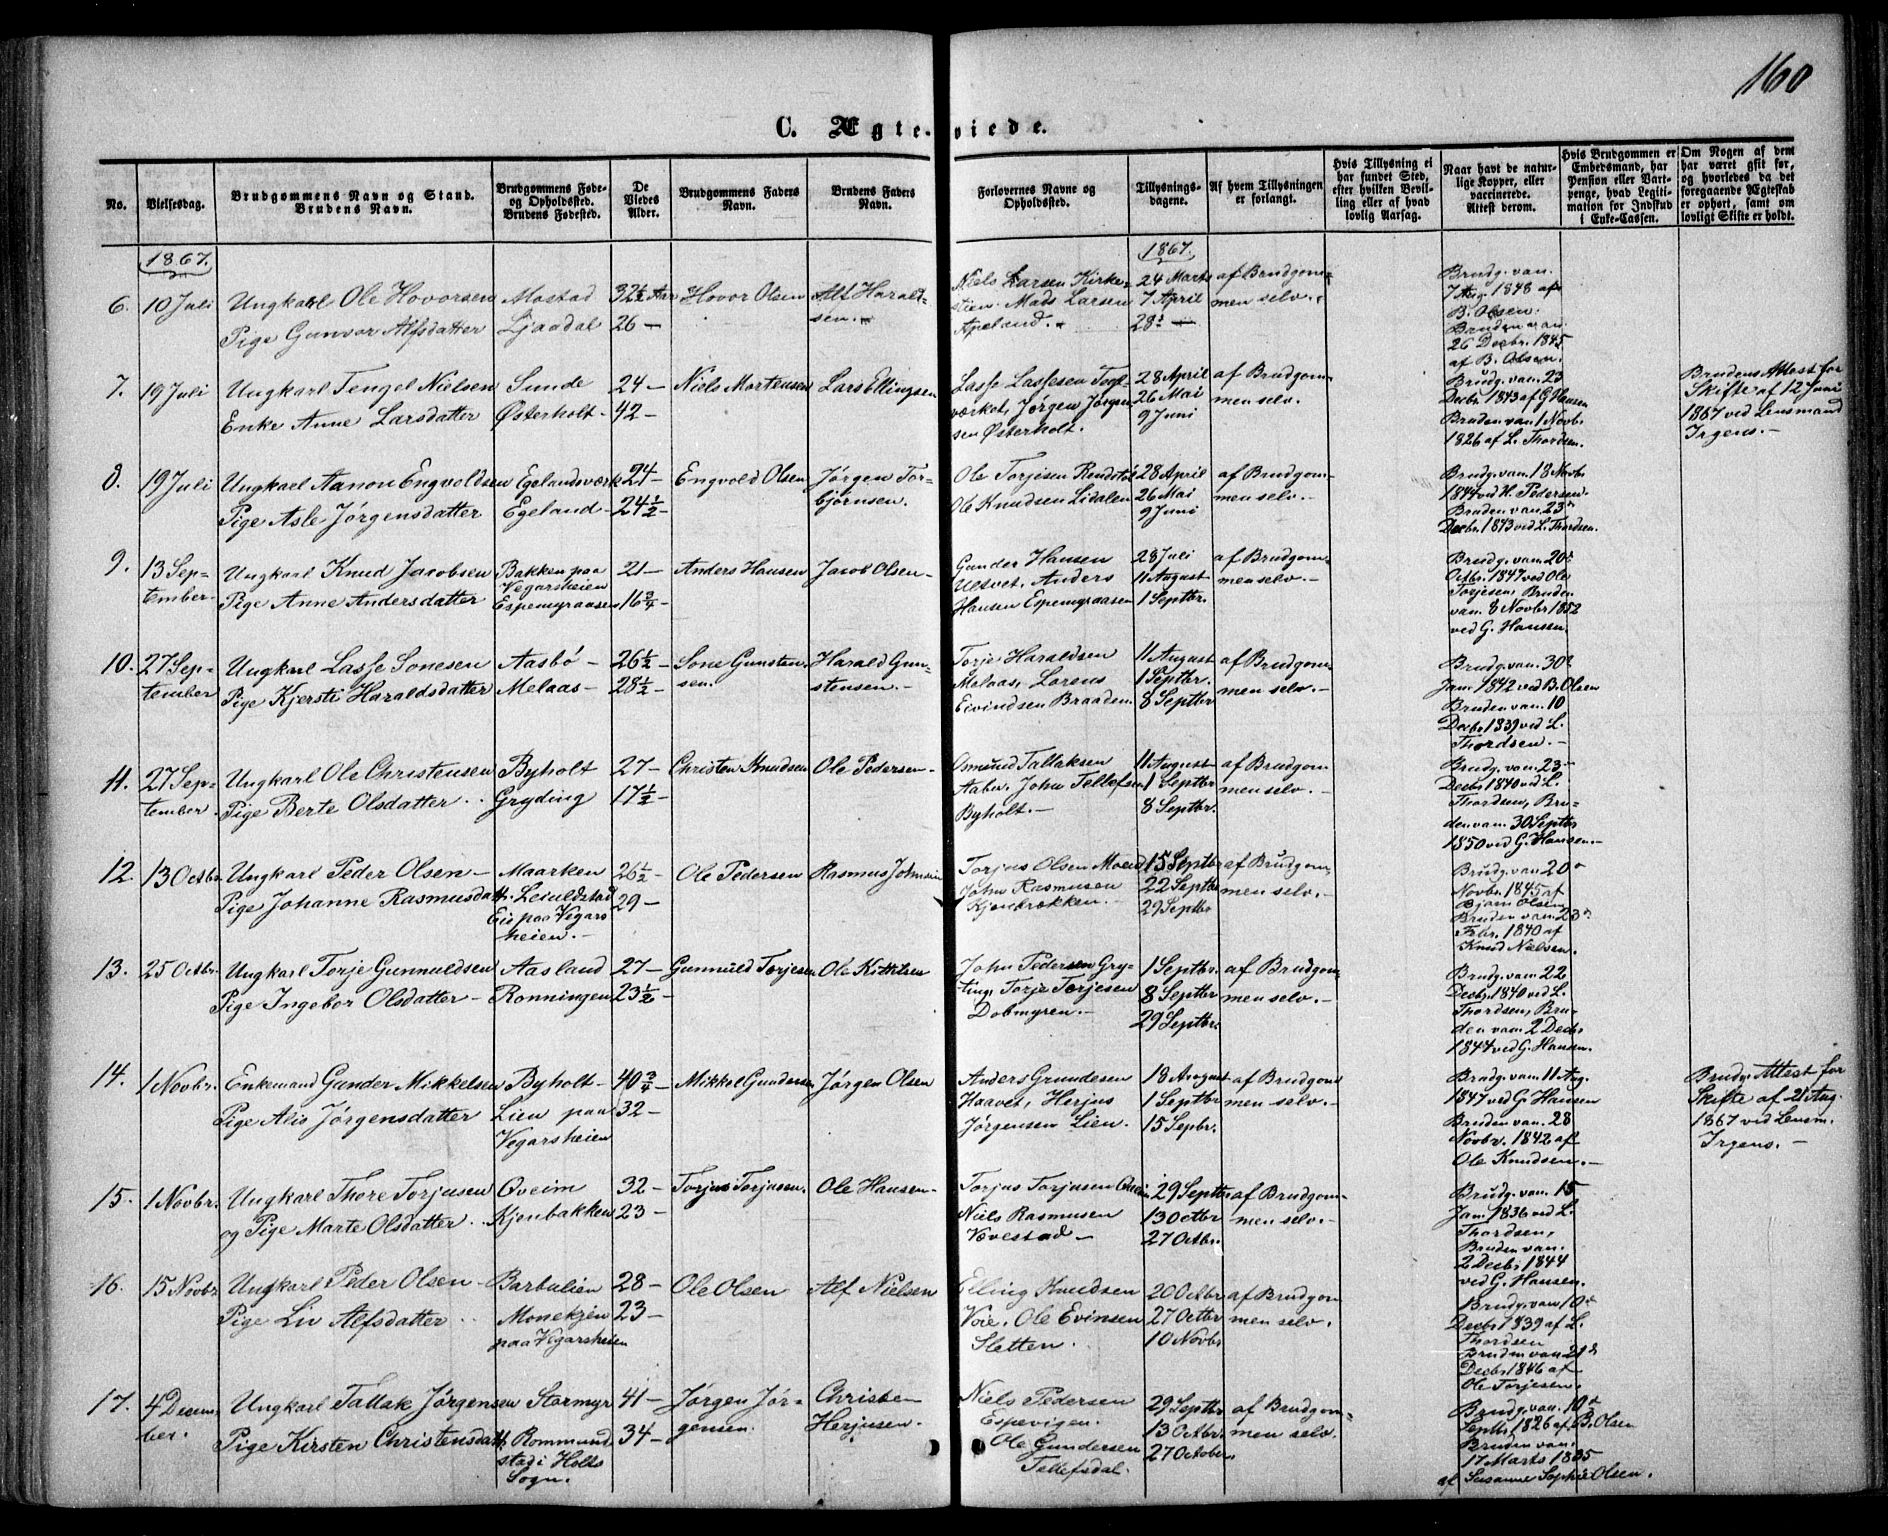 160
C. Ægte-viede.
No. Vielsesdag. Brudgommens Navn og Stand. Brudens Navn. Brudgommens Føde- og Opholdsted. Brudens Fødested. De Viedes Alder. Brudgommens Faders Navn. Brudens Faders Navn. Forlovernes Navne og Opholdsted. Tillysnings-dagene. Af hvem Tillysningen er forlangt. Hvis Tillysning ei har fundet Sted, efter hvilken Bevilling eller af hvad lovlig Aarsag. Naar havt de naturlige Kopper, eller vaccinerede. Attest derom. Hvis Brudgommen er Embedsmand, har Pension eller Vartpenge, hvad Legitimation for Indskud i Enke-Cassen. Om Nogen af dem har været gift før, og hvorledes da det foregaaende Ægteskab er ophørt, samt om lovligt Skifte er holdt.
1867. 1867.
6. 10 Juli Ungkarl Ole Hovorsen Mostad 32½ Aar Hovor Olsen Alf Harald- Niels Larsen Kirke- 24 Marts af Brudgom- Brudg. van.
Pige Gunvor Alfsdatter Ljaadal 26 — sen. stien. Mads Larsen 7 April men selv. 7 Aug. 1848 af
Apeland. 28 — B. Olsen.
Bruden van
26 Decbr. 1845
af B. Olsen.
7. 19 Juli Ungkarl Tengel Nielsen Sunde 24 — Niels Mortensen Lars Ellingsen Lasse Lassesen 28 April af Brudgom- Brudg. van 23 Brudens Attest for
Enke Anne Larsdatter Østerholt - 42 — værket, Jørgen Jørgen- 26 Mai men selv. Decbr. 1843 af G Hansen Skifte af 12 Juni
sen Østerholt. 9 Juni Bruden van 1 Novbr. 1867 ved Lensmand
1826 af L. Thordsen. Irgens. —
8. 19 Juli Ungkarl Aanon Engvoldsen Egelandsværk 24 — Engvold Olsen Jørgen Tor- Ole Torjisen 28 April af Brudgom- Brudg. van 18 Novbr.
Pige Asle Jørgensdatter Egeland - 24½ — bjørnsen. Ole Knudsen Lidalen 26 Mai men selv. — 1844 ved H. Pedersen.
9 Juni Bruden van. 23
Decbr. 1843 ved L. Thordsen.
9. 13 Sep- Ungkarl Knud Jacobsen Bakken paa 21 — Anders Hansen Jacob Olsen - Gunder Hansen 28 Juli af Brudgom- Brudg. vam. 20
tember. Pige Anne Andersdatter Vegarsheien 16¾ — Ultvet, Anders 11 August men selv. — Octbr. 1847 ved Ole
Espemyraasen Hansen Espemyraasen 1 Septbr. Torjesen, Bruden
van. 8 Novbr 1852
ved G. Hansen.
10. 27 Sep- Ungkarl Lasse Sonesen Aasbø — 26½ — Sone Gunsten- Harald Gun- Torje Haraldsen 11 August af Brudgom- Brudg. van. 30
tember Pige Kjersti Haraldsdatter Melaas - 28½ — sen. stensen. — Melaas, Lorens 1 Septbr. men selv. — Jan. 1842 ved B. Olsen
Eivindsen Braaden 8 Septbr Bruden van. 10
Decbr 1839 ved L.
Thordsen. —
11. 27 Sep- Ungkarl Ole Christensen Byholt 27 — Christen Knudsen Ole Pedersen - Osmund Tallaksen 11 August af Brudgom Brudg. vam. 23
tember. Pige Berte Olsdatter. Gryding 17½ — John Tellefsen 1 Septbr men selv. — Decbr 1840 ved L.
Byholt. — 8 Septbr. Thordsen, Bru-
den vam. 30 Septbr
1850 ved G. Hansen. —
12. 13 Octbr. Ungkarl Peder Olsen — Maarken 26½ — Ole Pedersen Rasmus Johnsen Torjus Olsen 15 Septbr af Brudgom- Brudg. van. 20
Pige Johanne Rasmusdatt. 29 — John Rasmusen 22 Septbr men selv. — Novbr. 1845 af
Eie paa Vegars Kjenbrækken. — 29 Septbr Bjørn Olsen
heien. — Bruden van. 23
Febr. 1840 af
Knud Nielsen.
13. 25 Octbr. Ungkarl Torje Gunnuldsen Aasland 27 — Gunnuld Torjesen Ole Kittilsen John Pedersen Gry- 1 Septbr. af Brudgom- Brudg. vam 22
Pige Ingebor Olsdatter — Rønningen 23½ — ting, Torje Torjesen 8 Septbr men selv. — Decbr. 1840 ved L.
Dobmyren. — 29 Septbr. Thordsen, Bru-
den vam. 2 Decbr
1844 ved G. Hansen.
14. 1 Novbr. Enkemand Gunder Mikkelsen Byholt - 40¾ — Mikkel Gundersen Jørgen Olsen Anders Grundesen 18 August af Brudgom Brudg. vam 11 Aug. Brudg. Attest for
Pige Alis Jørgensdatter Lien paa 32 — Haavet, Herjus 1 Septbr men selv. — 1847 ved G. Hansen Skifte af 21 Aug.
Vegarsheien Jørgensen Lien. 15 Sepbr. Bruden van. 28 1867 ved Lensm.
Novbr. 1842 af Irgens. —
Ole Knudsen. —
15. 1 Novbr. Ungkarl Thore Torjusen Qveim 32 — Torjus Torjusen. Ole Hansen - Torjus Torjusen 29 Septbr af Brudgom- Brudg. van. 15
og Pige Marte Olsdatter. Kjenbakken 23 — Niels Rasmusen 13 Octbr men selv. — Jan. 1836 ved L.
Vovestad — 27 Octbr. Thordsen,
Bruden van.
2 Decbr 1844
ved G. Hansen.
16. 15 Novbr Ungkarl Peder Olsen - Barbulien 28 — Ole Olsen Alf Nielsen Elling Knudsen 20 Octbr af Brudgom Brudg. van 10
Pige Liv Alfsdatter Monekjen 23 — Voie. Ole Evinsen 27 Octbr men selv. Decbr 1839 af L.
paa Vegarsheien Sletten. 10 Novbr Thordsen
Bruden van. 21
Decbr 1846 af
Ole Torjesen.
17. 4 Decem- Ungkarl Tallak Jørgensen Stormyr 41 — Jørgen Jør- Christen Niels Pedersen 29 Septbr af Brudgom- Brudg. van. 10
ber. Pige Kirsten Christensdatt. Rommund 34 — gensen. Herjusen. Espevigen. 13 Octbr. men selv. Septbr. 1826 af B. Olsen
stad i Holts Ole Gundersen 27 October. Bruden van.
Sogn. Tellefsdal. 17 Marts 1835
af Susanne Sophie Olsen.